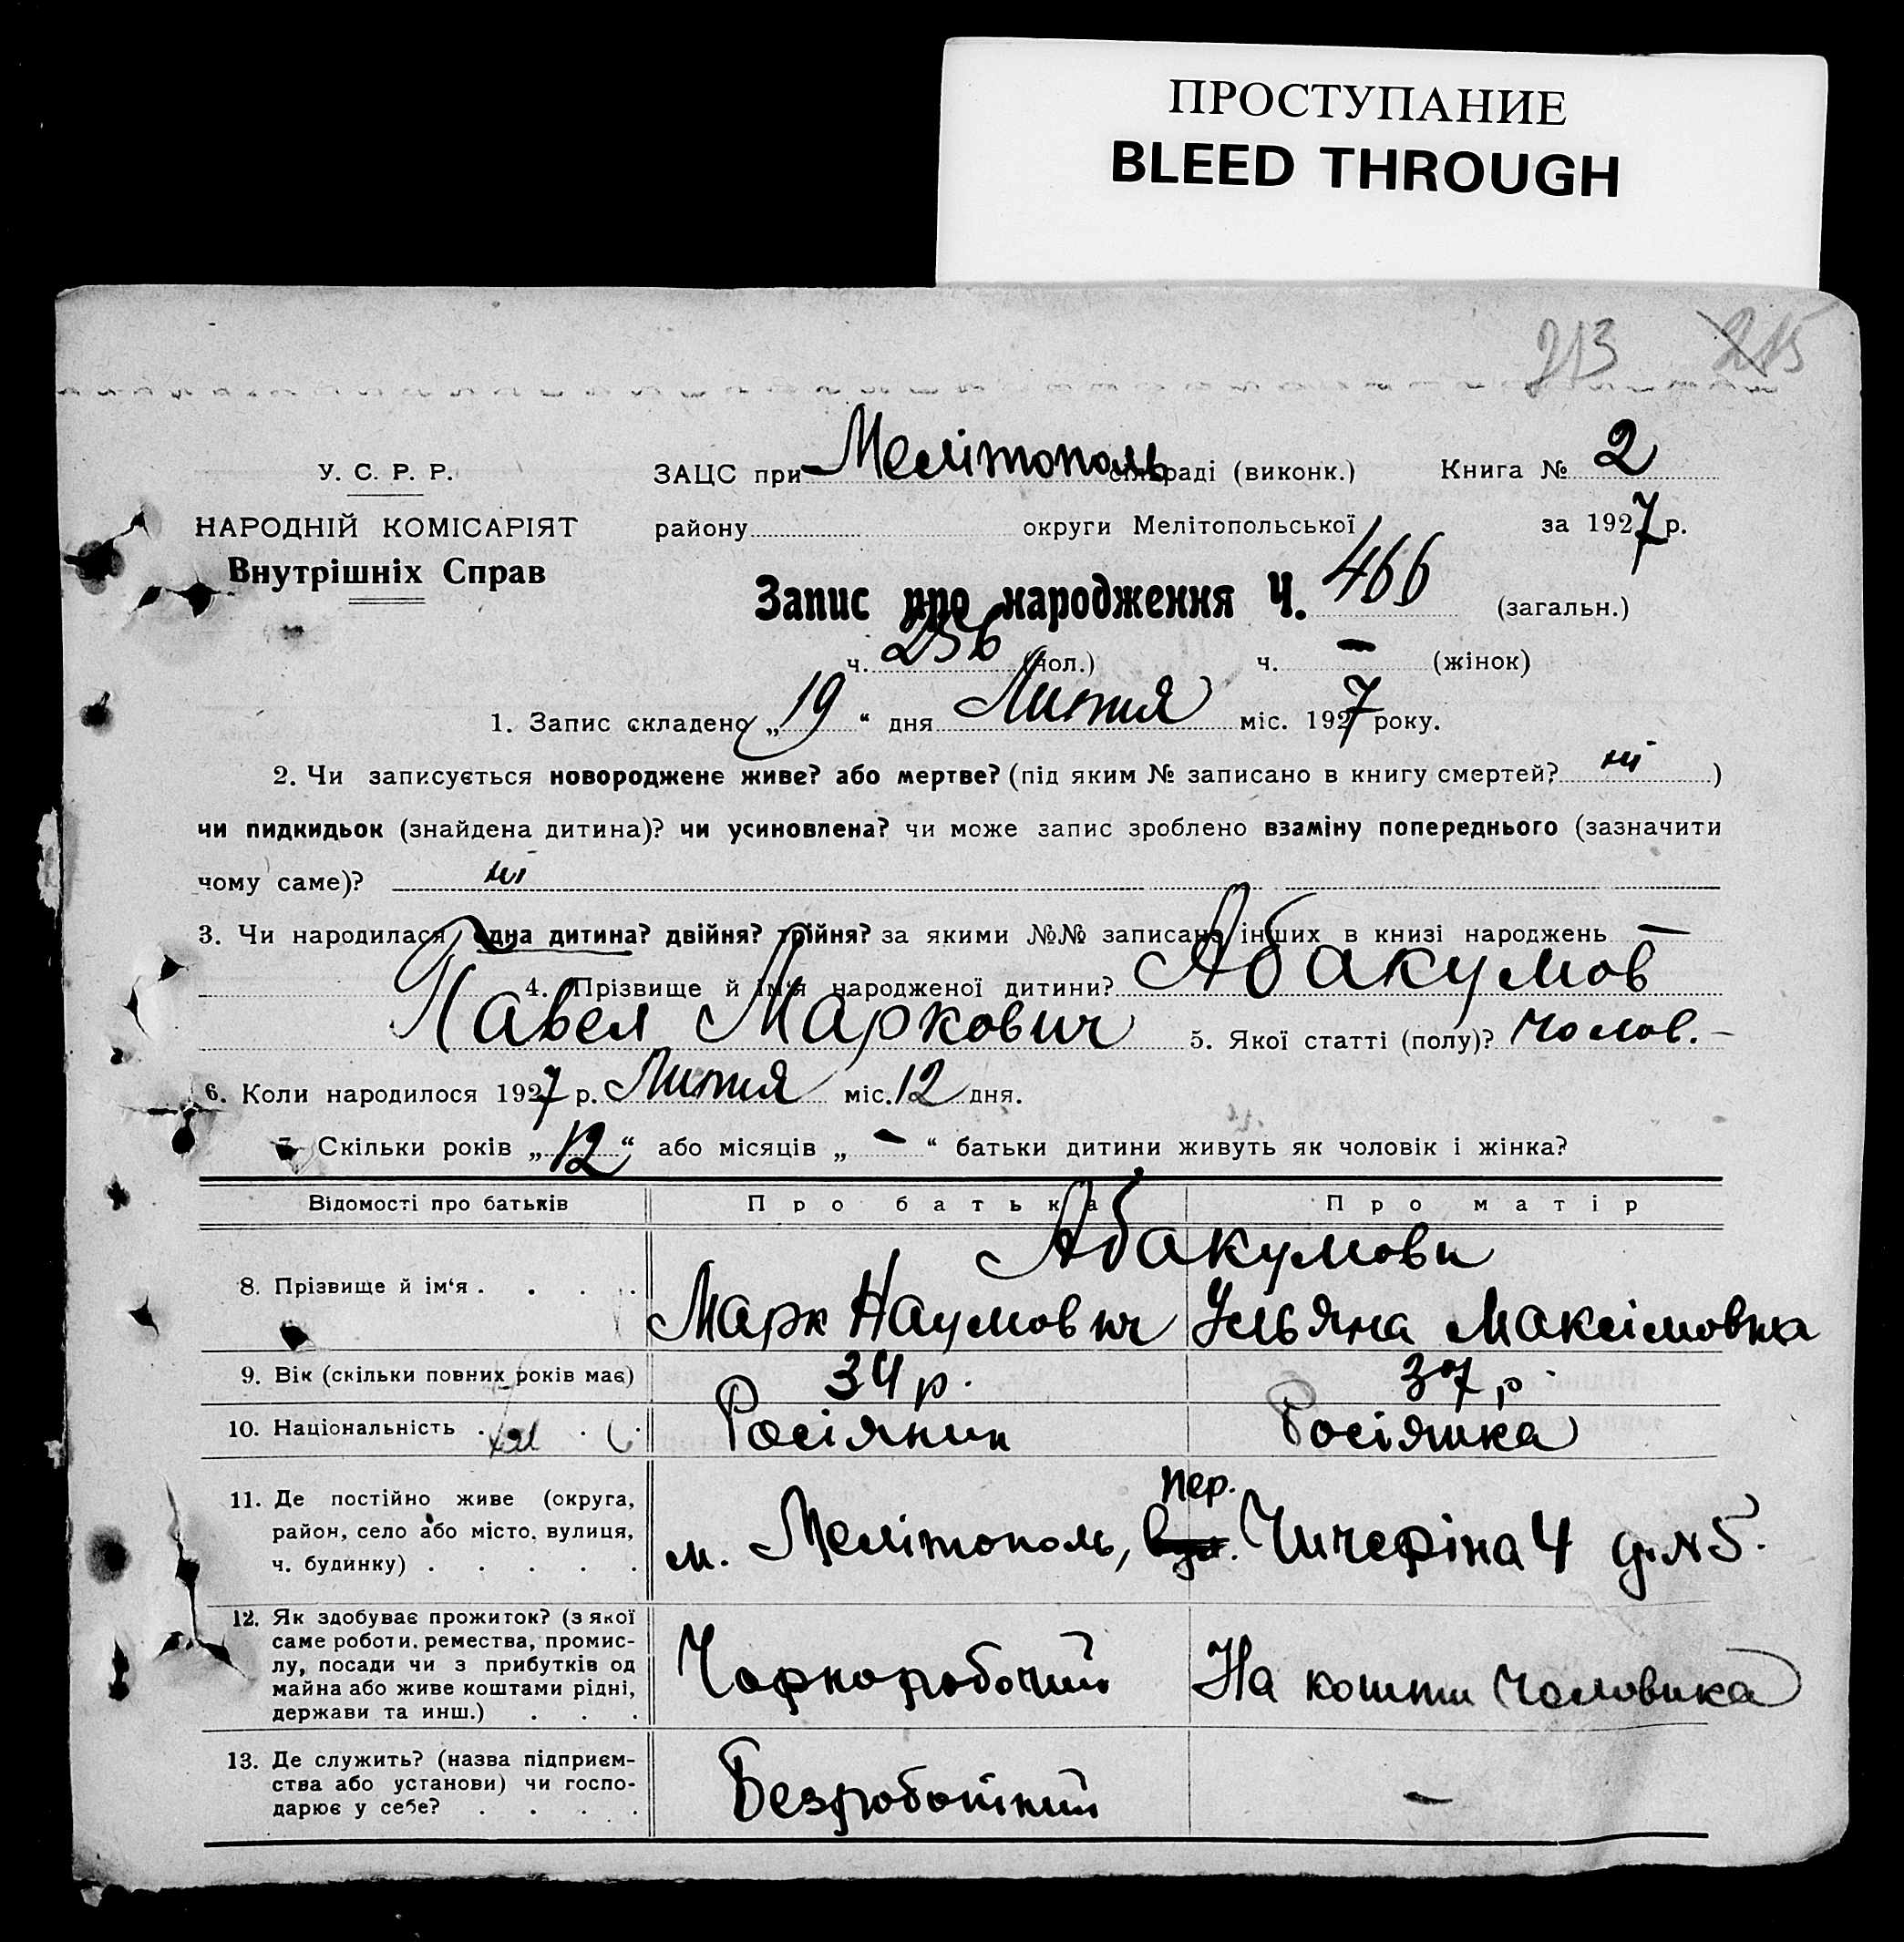 ПРОСТУПАНИЕ
BLEED THROUGH
213 215
У. С. Р. Р.
НАРОДНІЙ КОМІСАРІЯТ
Внутрішніх Справ
ЗАЦС при Мелітополь сільраді (виконк.) Книга № 2
району округи Мелітопольської за 1927 р.
Запис про народження Ч. 466 (загальн.)
ч. 256 (чол.) ч. – (жінок)
1. Запис складено „19“ дня Липня міс. 1927 року.
2. Чи записується новороджене живе? або мертве? (під яким № записано в книгу смертей? ні )
чи пидкидьок (знайдена дитина)? чи усиновлена? чи може запис зроблено взаміну попереднього (зазначити
чому саме)? ні
3. Чи народилася одна дитина? двійня? трійня? за якими №№ записано інших в книзі народжень –
4. Прізвище й ім‘я народженої дитини? Абакумов
Павел Маркович 5. Якої статті (полу)? Чолов. –
6. Коли народилося 1927 р. Липня міс. 12 дня.
7. Скільки років „12“ або місяців „–“ батьки дитини живуть як чоловік і жінка?
Відомості про батьків Про батька Про матір
Абакумови
8. Прізвище й ім‘я . . . . Марк Наумович Ульяна Максімовна
9. Вік (скільки повних років має) 34 р. 37 р.
10. Національність . . . . Росіянин Росіянка
11. Де постійно живе (округа,
район, село або місто, вулиця,
ч. будинку) . . . . .
пер.
м. Мелітополь, вул. Чичеріна 4 д. № 5.
12. Як здобуває прожиток? (з якої
саме роботи, ремества, промис-
лу, посади чи з прибутків од
майна або живе коштами рідні,
держави та инш.) . . .
Чорноробочий На кошти Чоловика
13. Де служить? (назва підприєм-
ства або установи) чи госпо-
дарює у себе? . . . .
Безробітний –